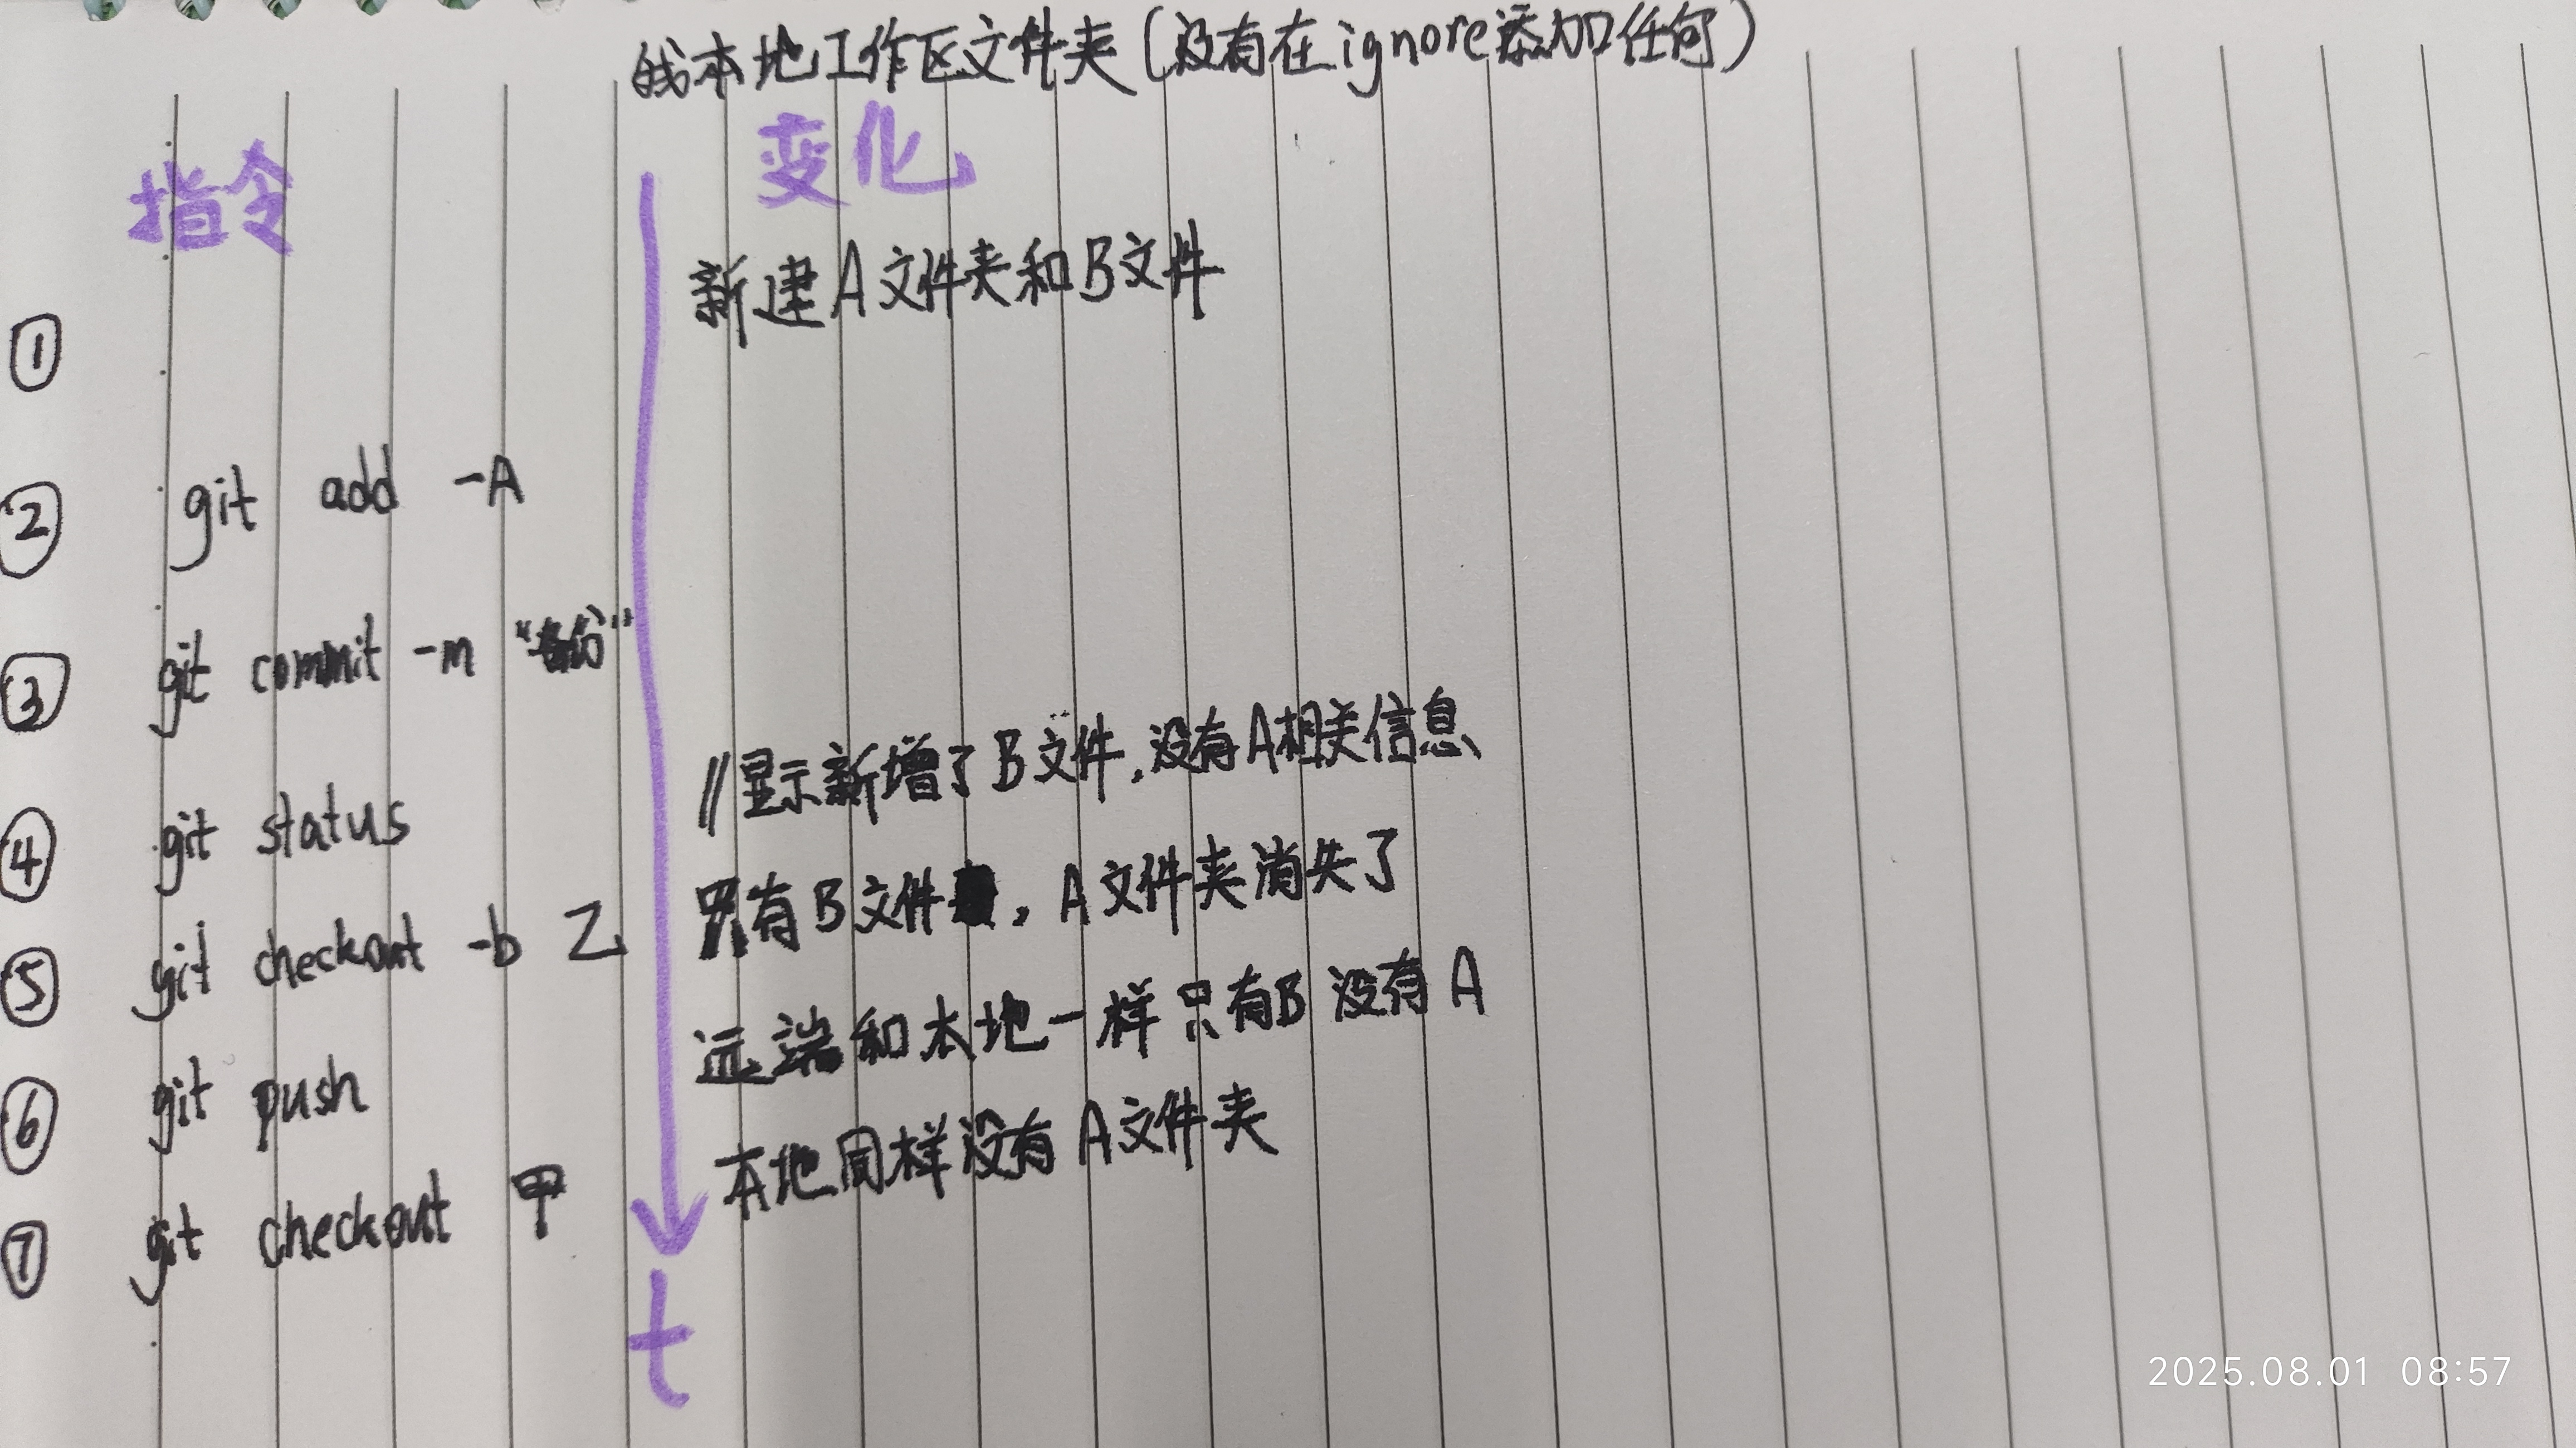 我本地工作区文件夹(没有在ignore添加任何)
指令 变化
新建A文件夹和B文件
①
② git add -A
③ git commit -m "备份"
//显示新增了B文件,没有A相关信息
④ git status
只有B文件,A文件夹消失了
⑤ git checkout -b 乙
远端和本地一样只有B没有A
⑥ git push
本地同样没有A文件夹
⑦ git checkout 甲
t
2025.08.01 08:57